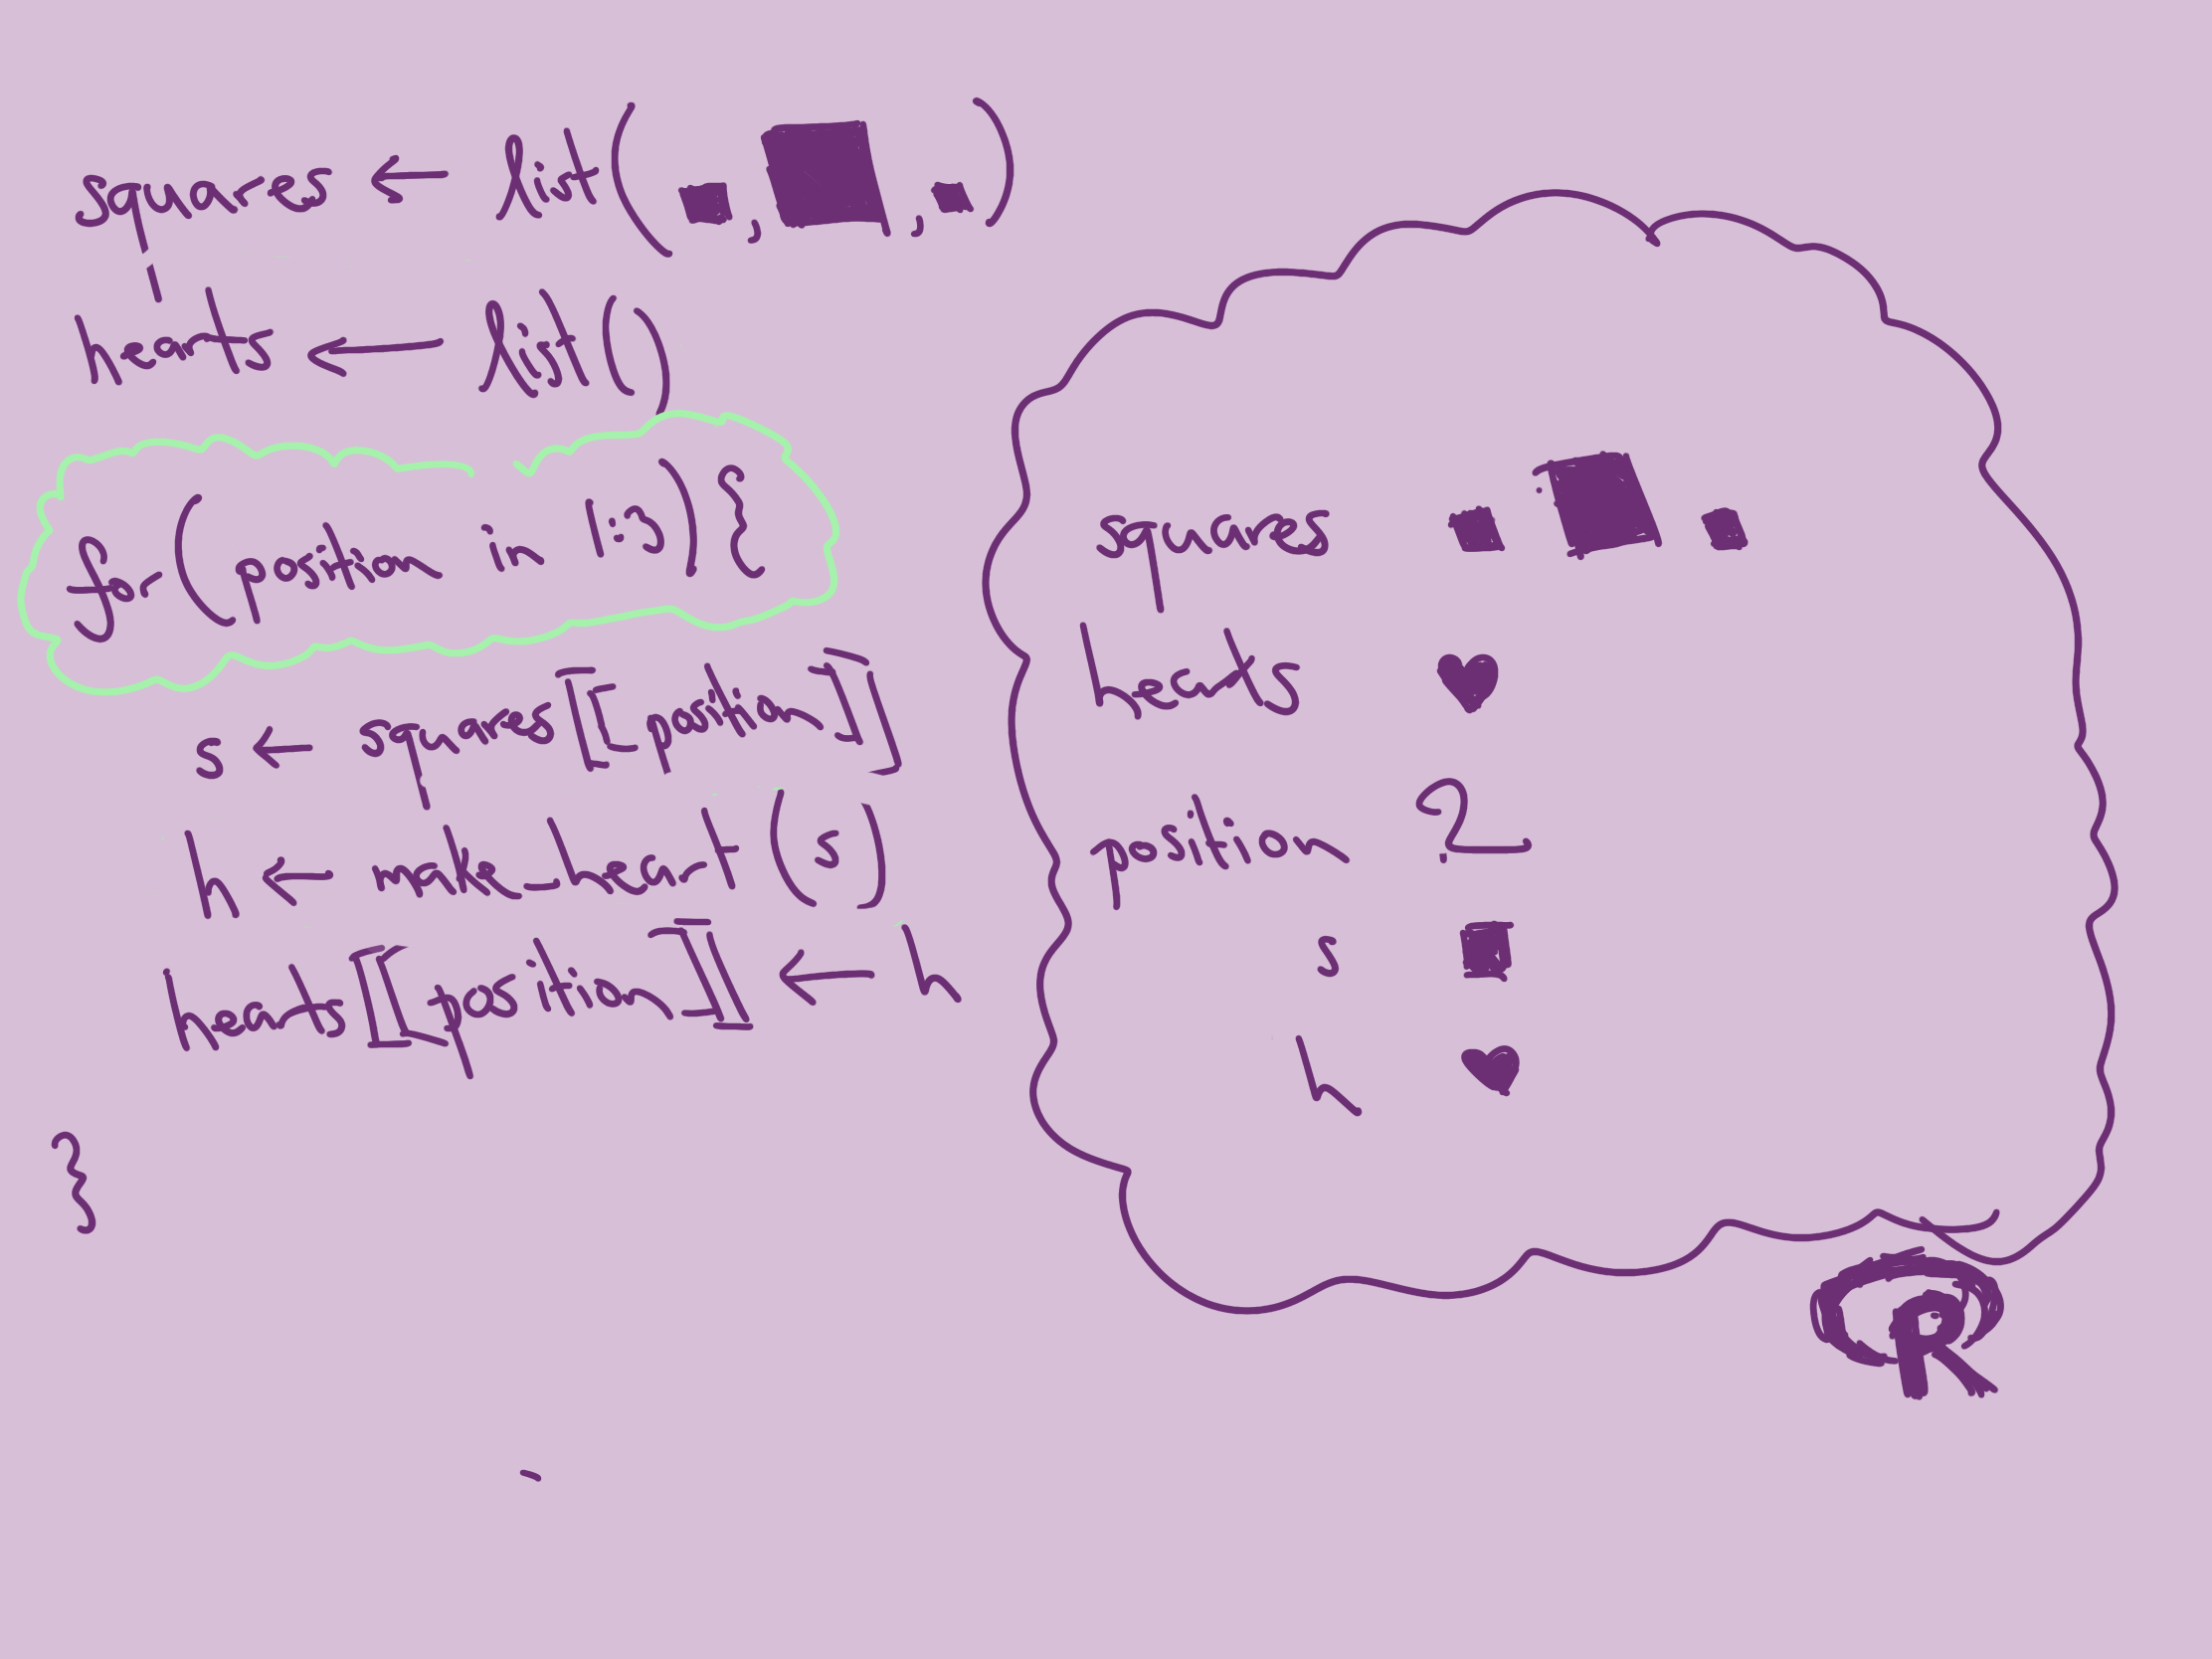 squares ← list(■, ■, ■)
hearts ← list()
for(position in 1:3){
s ← squares[[position]]
h ← make_heart(s)
hearts[[position]] ← h
}
squares ■ ■ ■
hearts ♥
position 2
s ■
h ♥
R